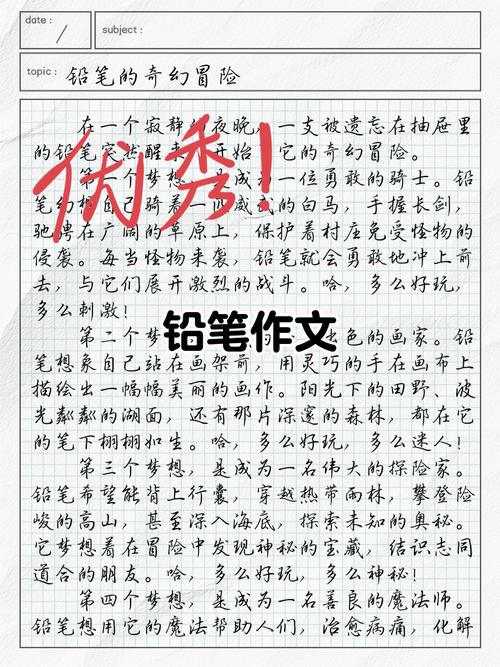 date:
/
subject:
topic: 铅笔的奇幻冒险
在一个寂静 夜晚, 一支被遗忘在抽屉里
的铅笔突然醒来 开始 它的奇幻冒险。
第一个梦想, 是成为一位勇敢的骑士。铅
笔幻想自己骑着一匹威武的白马, 手握长剑,
驰骋在广阔的草原上, 保护着村庄免受怪物的
侵袭。每当怪物来袭, 铅笔就会勇敢地冲上前
去, 与它们展开激烈的战斗。哈, 多么好玩,
多么刺激!
优秀!
第二个梦 出色的画家。铅
铅笔作文
笔想象自己站在画架前, 用灵巧的手在画布上
描绘出一幅幅美丽的画作。阳光下的田野、波
光粼粼的湖面, 还有那片深邃的森林, 都在它
的笔下栩栩如生。哈, 多么好玩, 多么迷人!
第三个梦想, 是成为一名伟大的探险家。
铅笔希望能背上行囊, 穿越热带雨林, 攀登险
峻的高山, 甚至深入海底, 探索未知的奥秘。
它梦想着在冒险中发现神秘的宝藏, 结识志同
道合的朋友。哈, 多么好玩, 多么神秘!
第四个梦想, 是成为一名善良的魔法师。
铅笔想用它的魔法帮助人们, 治愈病痛, 化解